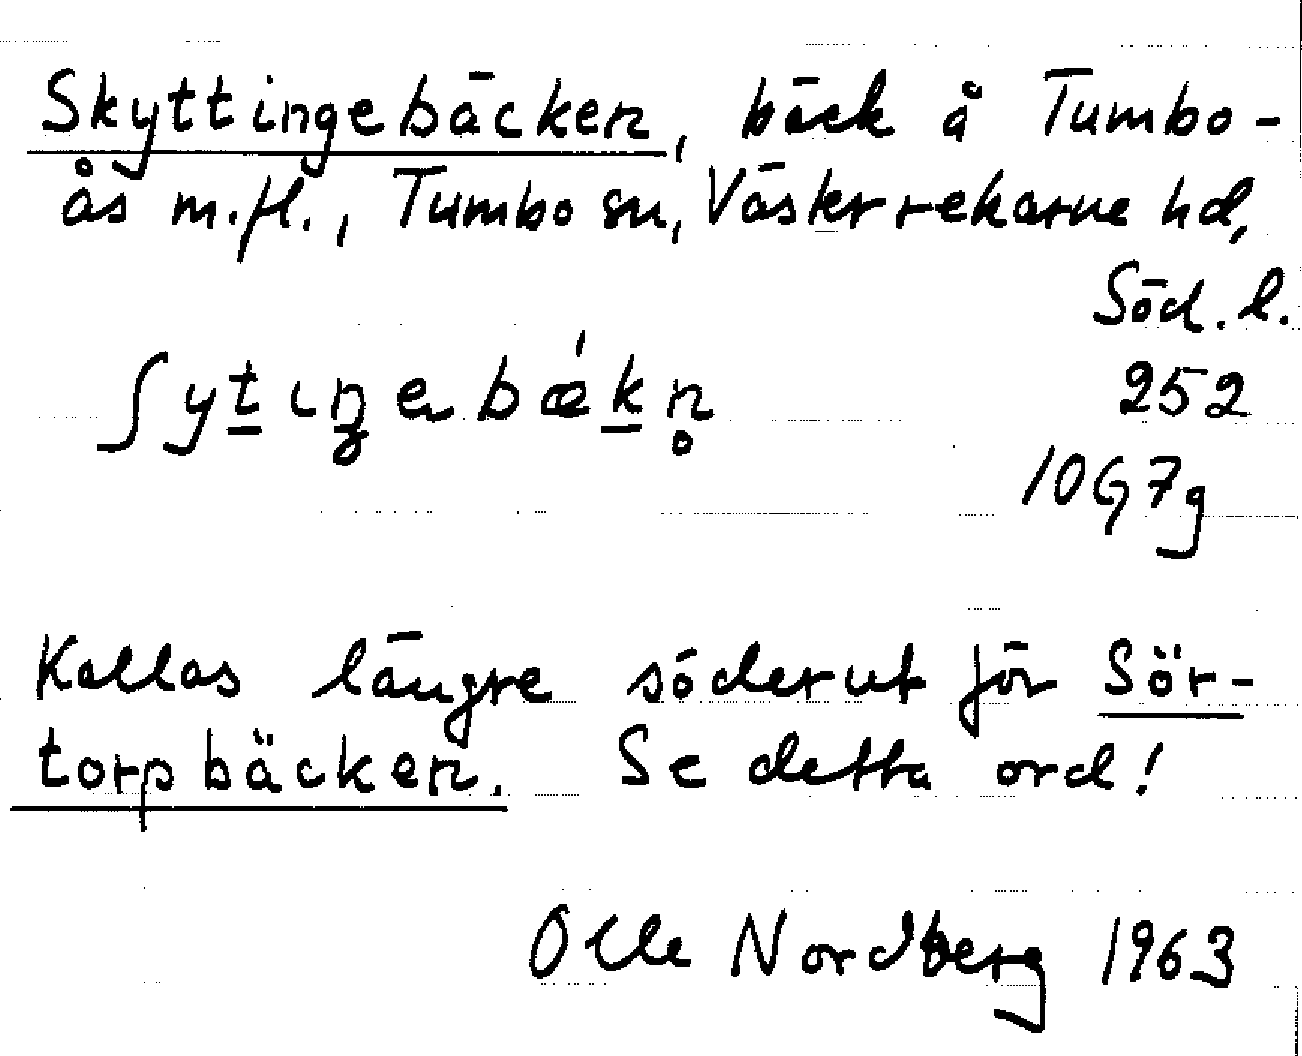 Skyttingebäcken, bäck å Tumbo-
ås m.fl., Tumbo sn, Västerrekarne hd,
Söd. l.
ʃytiŋebǽkn̥
252
10G7g
Kallas längre söderut för Sör-
torpbäcken. Se detta ord!
Olle Nordberg 1963